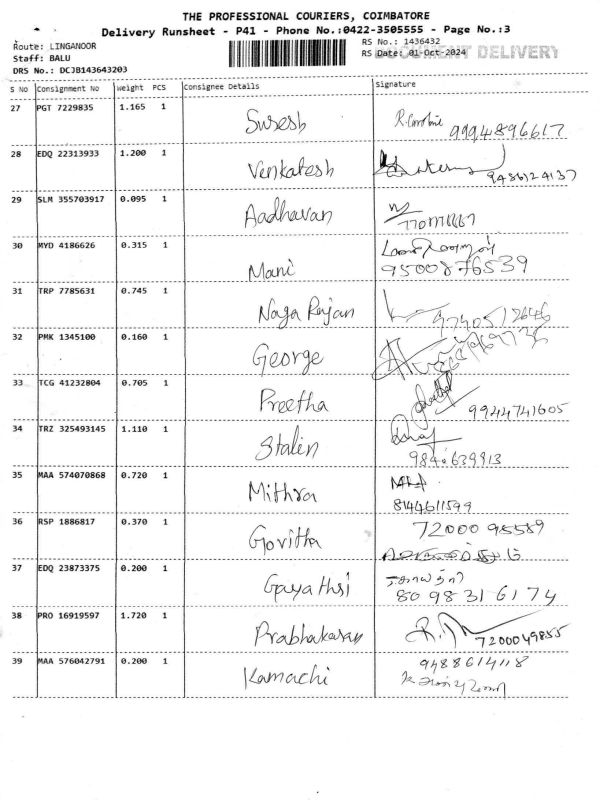 THE PROFESSIONAL COURIERS, COIMBATORE
Delivery Runsheet - P41 - Phone No.:0422-3505555 - Page No.:3
Route: LINGANOOR
Staff: BALU
DRS No.: DCJB143643203
RS No.: 1436432
RS Date: 01-Oct-2024
DOCUMENT DELIVERY
S No Consignment No Weight PCS Consignee Details Signature
27 PGT 7229835 1.165 1 Suresh 9994896617
28 EDQ 22313933 1.200 1 Venkatesh 9486124137
29 SLM 355703917 0.095 1 Aadhavan
30 MYD 4186626 0.315 1 Mani 9500876539
31 TRP 7785631 0.745 1 Naga Rajan
32 PMK 1345100 0.160 1 George
33 TCG 41232804 0.705 1 Preetha 9944741605
34 TRZ 325493145 1.110 1 Stalin 9840639913
35 MAA 574070868 0.720 1 Mithra 8144611599
36 RSP 1886817 0.370 1 Govitha 7200095589
37 EDQ 23873375 0.200 1 Gayathri 8098316174
38 PRO 16919597 1.720 1 Prabhakaran 7200049855
39 MAA 576042791 0.200 1 Kamachi 9488614118